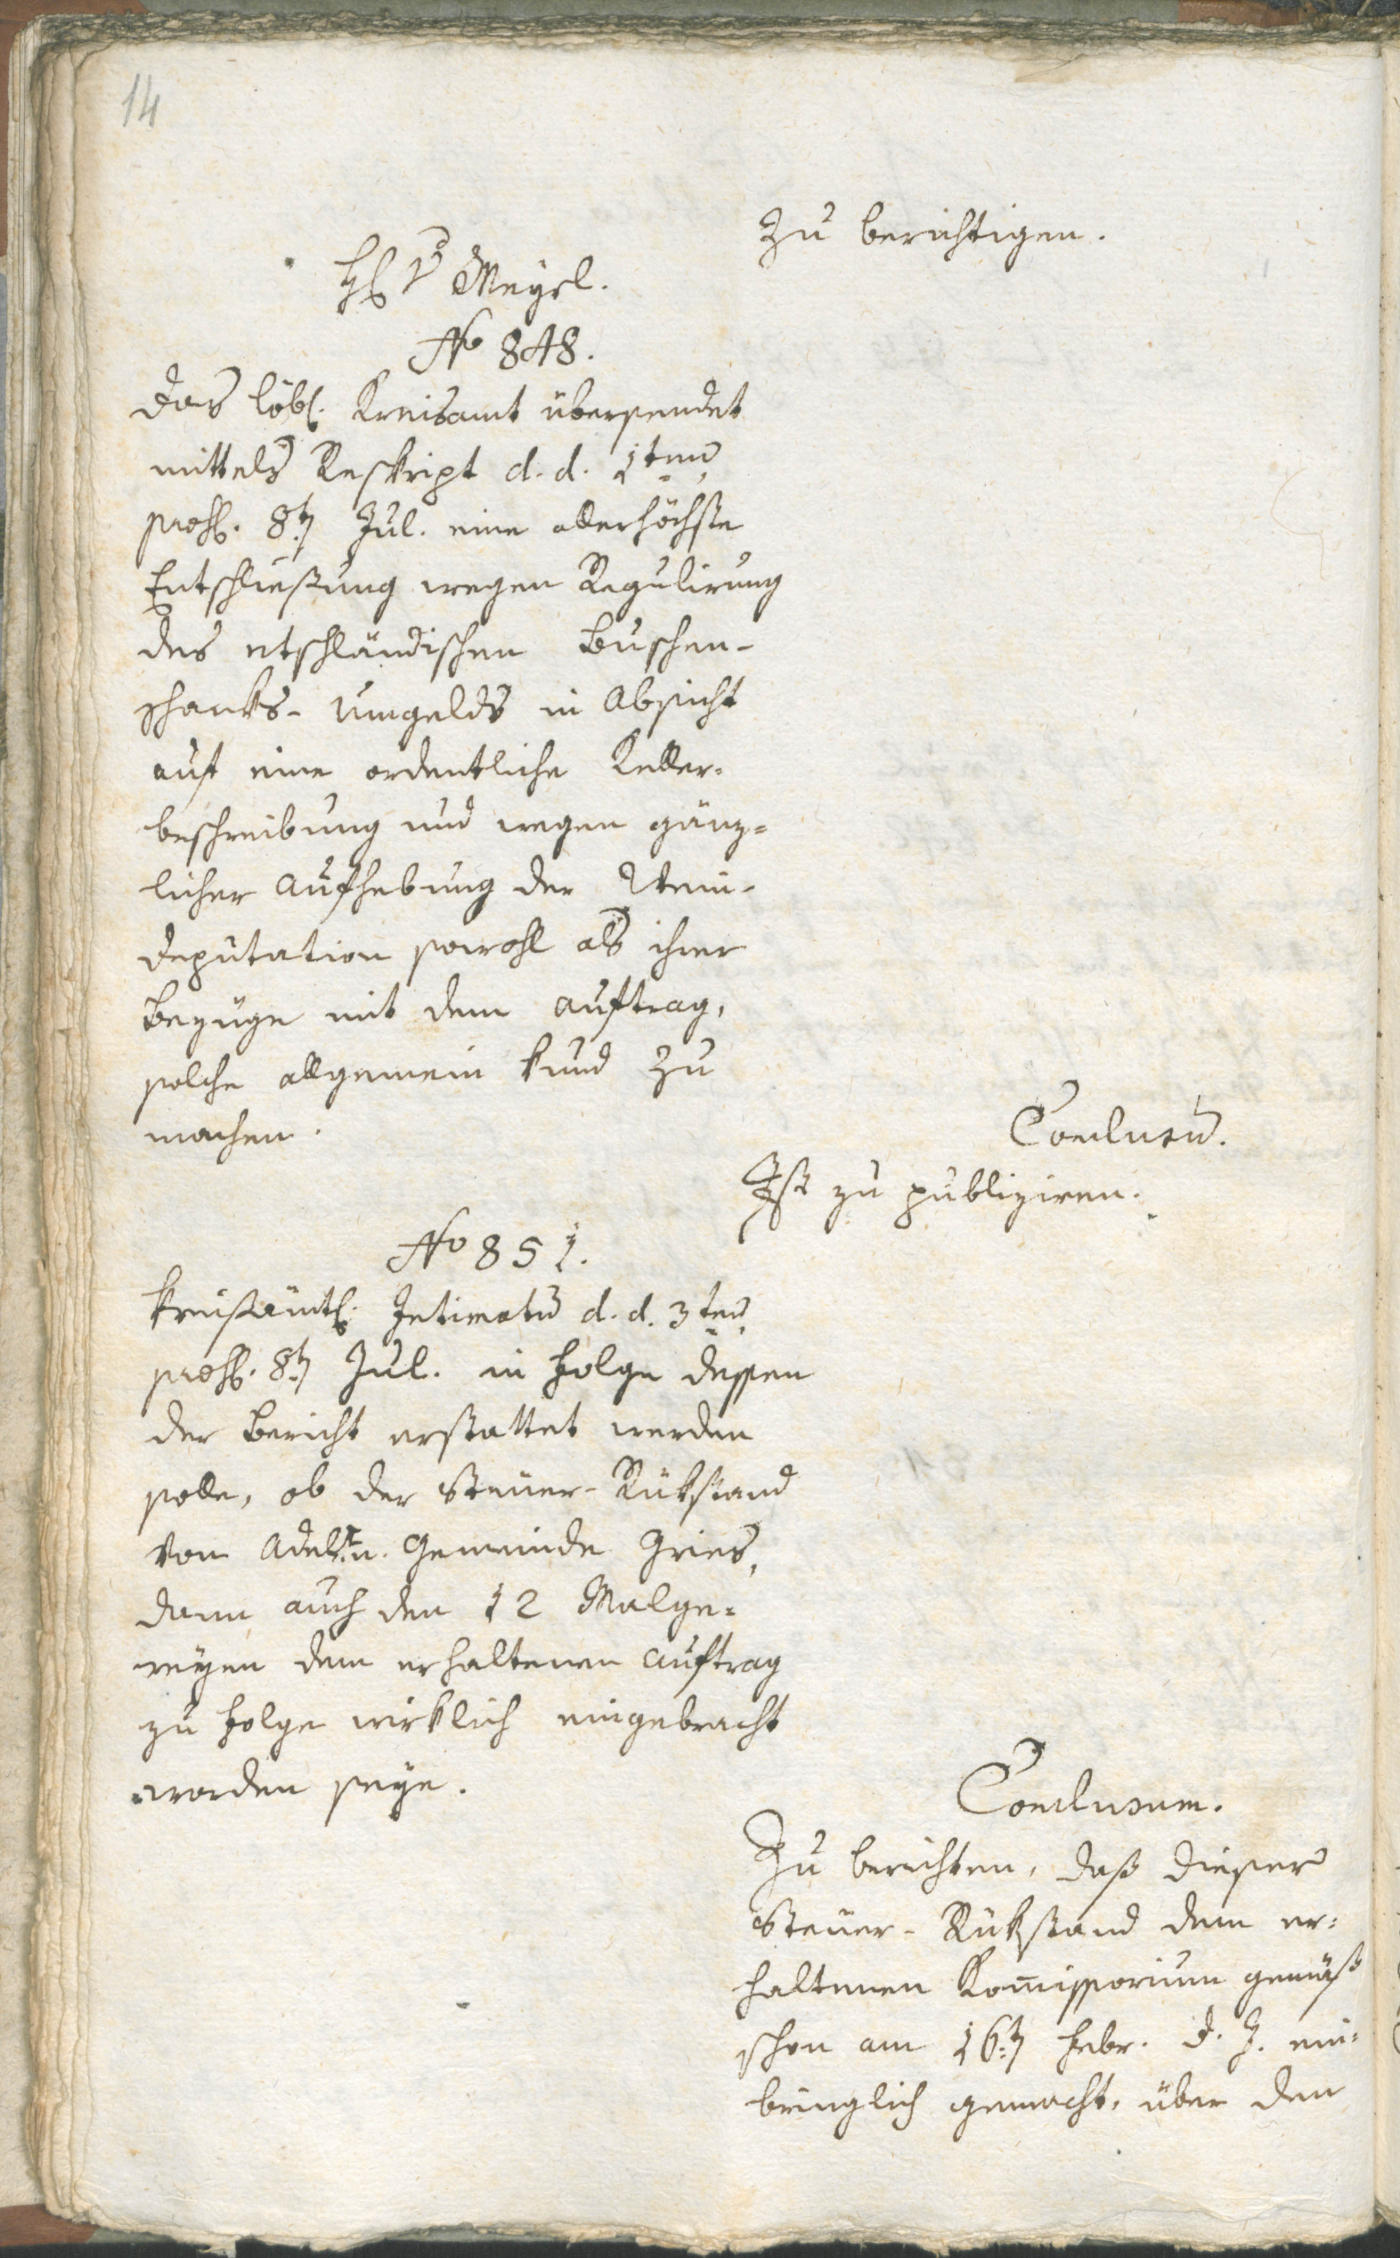 14
zu berichtigen.
H. v Meyrl.
No 848.
Das löbl. Kreisamt übersendet
mittels Reskript d. d. 1ten
präs. 8t. Jul. eine allerhöchste
Entschliessung wegen Regulirung
des etschländischen Buschen-
schanks-Umgelds in Absicht
auf eine ordentliche Keller-
beschreibung und wegen gänz=
licher Aufhebung der Wein-
deputation sowohl als ihrer
Bezüge mit dem Auftrag,
solche allgemein kund zu
machen.
Conclusum.
Ist zu publiziren.
No 851.
Kreisämtl. Intimatum d. d. 3ten
präs. 8t. Jul. in Folge dessen
der Bericht erstattet werden
solle, ob der Steuer-Rükstand
von Adel u. Gemeinde Gries,
dann auch den 12 Malge=
reyen dem erhaltenen Auftrag
zu Folge wirklich eingebracht
worden seye.
Conclusum.
Zu berichten, daß dieser
Steuer-Rükstand dem er=
haltenen Kommissorium gemäß
schon am 16t. Febr. d. J. ein=
bringlich gemacht, über den